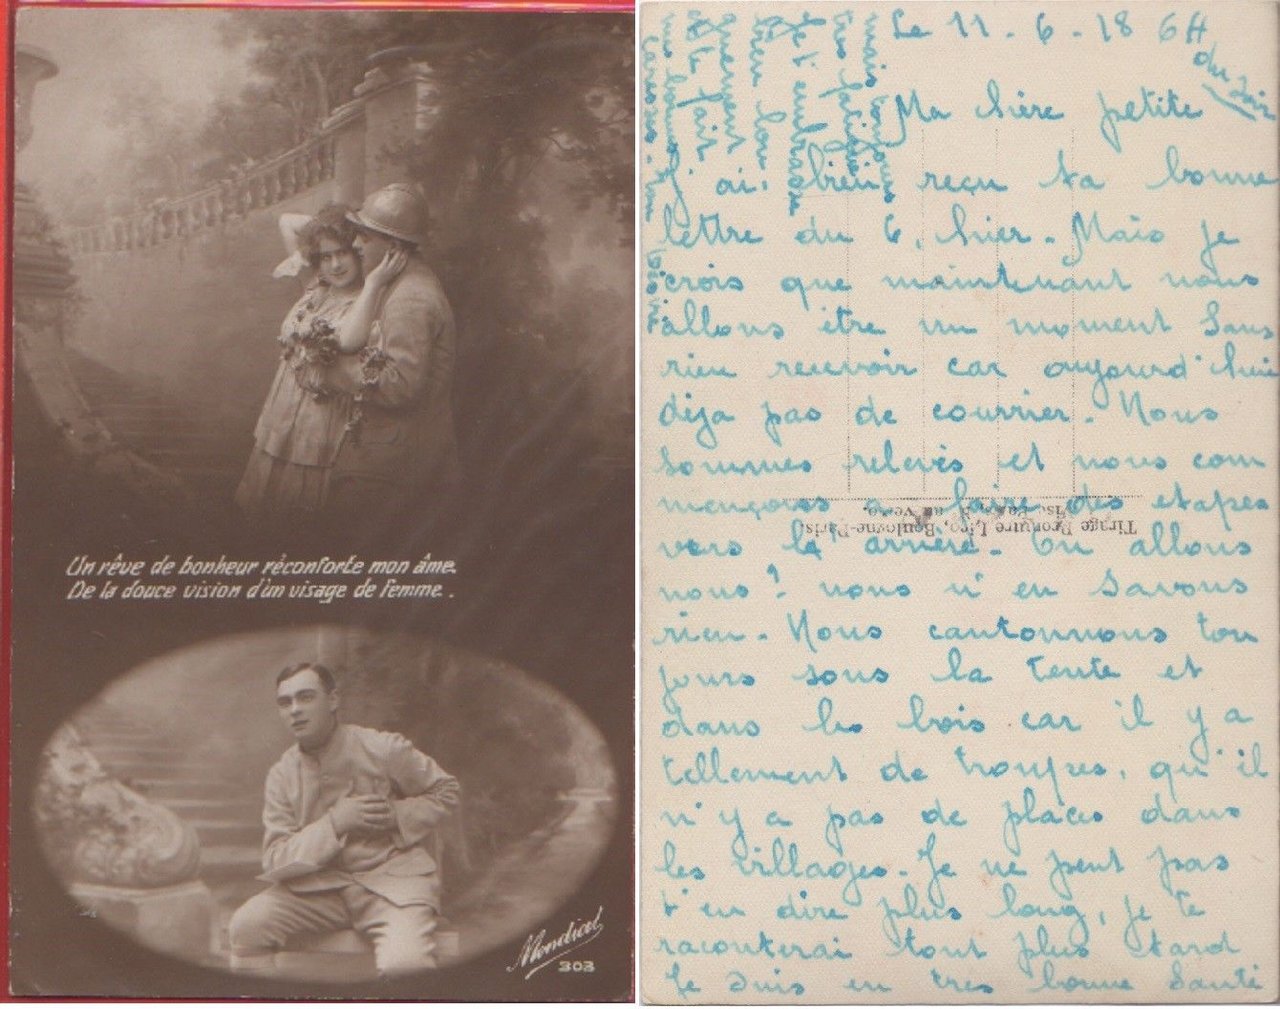 Un rêve de bonheur réconforte mon âme.
De la douce vision d'un visage de femme.
Mondial
303
Le 11-6-18 6H
du soir
Ma hière petite
J'ai bien reçu ta bonne
lettre du 6, hier. Mais je
crois que maintenant nous
allons être un moment sans
rien recevoir car aujourd'hui
déja pas de courrier. Nous
sommes relevés et nous com
mençons a faire des etapes
vers l'arrière. Ou allons
nous? nous n'en savons
rien. Nous cantonnons tou
jours sous la tente et
dans les bois car il y a
tellement de troupes, qu'il
n'y a pas de places dans
les villages. Je ne peut pas
t'en dire plus long, je te
raconterai tout plus tard
Je suis en tres bonne santé
mais toujours
tres fatigué
Je t'embrasse
bien lon
guement
Tirage Bromure Lico, Boulogne-Paris.